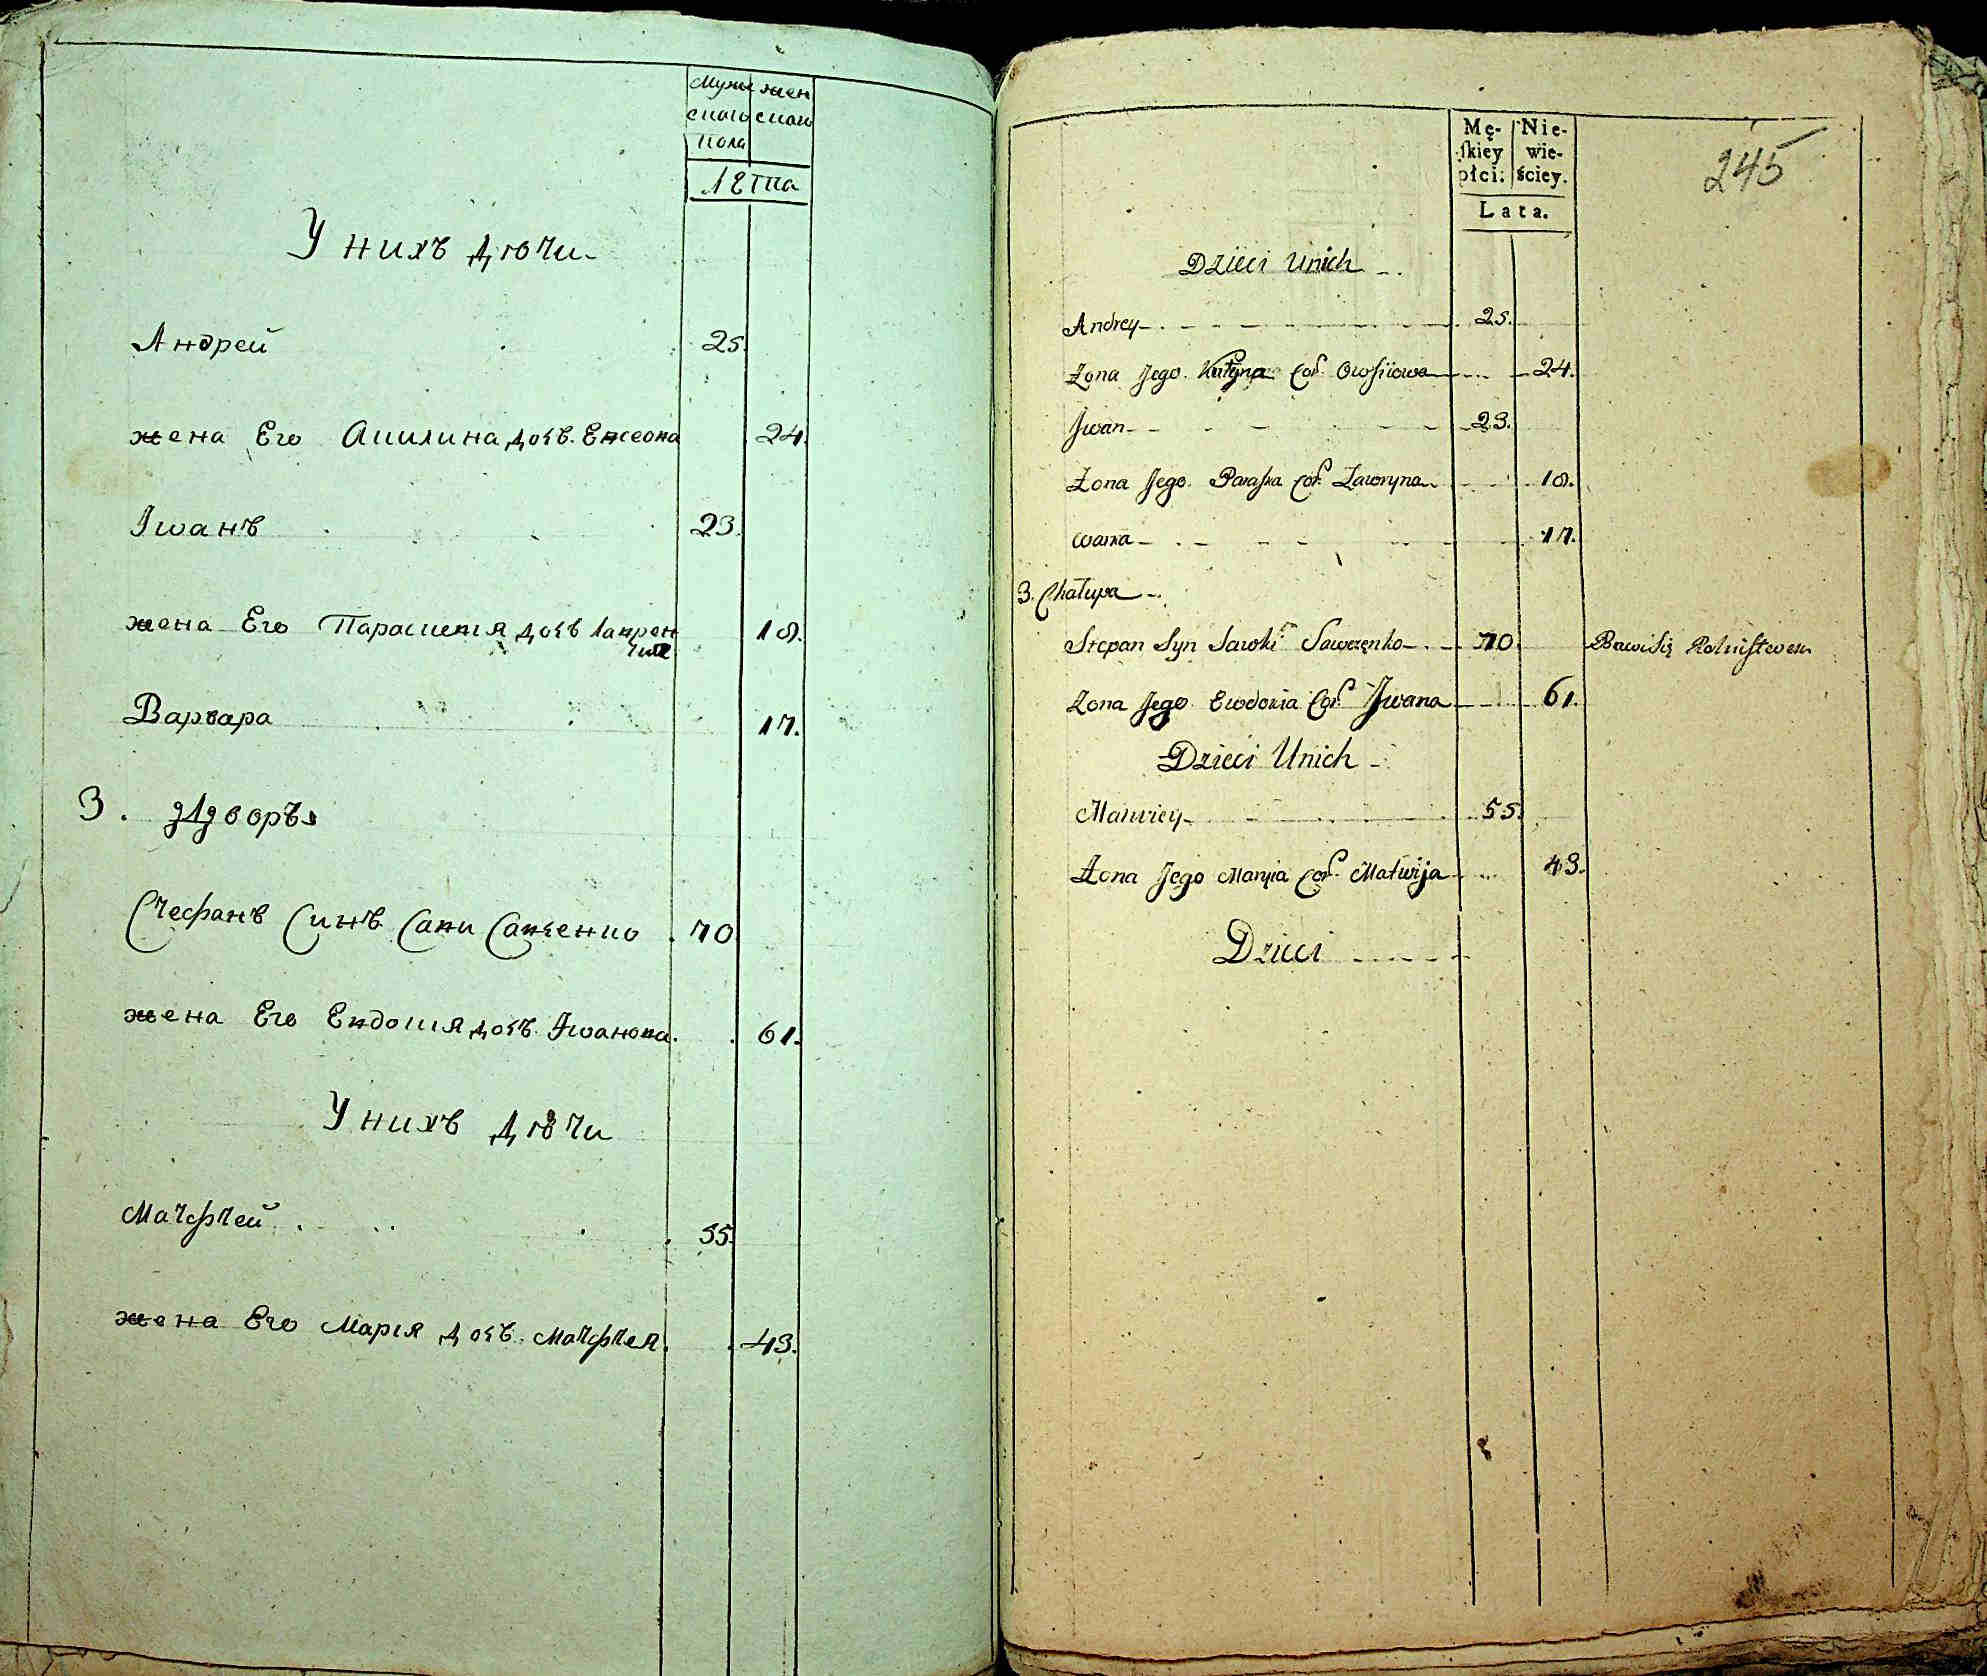 Мужескаго Пола
женскаго
Лѣта
У нихъ дѣти
Андрей 25.
жена Его Акилина дочь 24.
Іванъ 23.
жена Его Параскетія дочь Лаврен 18.
тія
Варвара 17.
3. Дворъ
Стефанъ Синъ Савы Савченко 70
жена Его Евдокия дочь Іванова 61.
У нихъ дѣти
Матфей 55.
жена Его Марія дочь Матфея 43.
245
Mę-
ſkiey
płci.
Nie-
wie-
ściey.
Lata.
Dzieci Unich
Andrey 25.
Zona Jego Cór. Owsiiowa 24.
Jwan 23.
Zona Jego Paraska Cór. Lawryna 18.
17.
3. Chałupa
Stepan Syn Sawki Sawczenko 70. Bawi się Rolnistwem
Zona Jego Ewdokia Cór. Jwana 61.
Dzieci Unich
Matwiey 55.
Zona Jego Maryia Cór. Matwija 43.
Dzieci